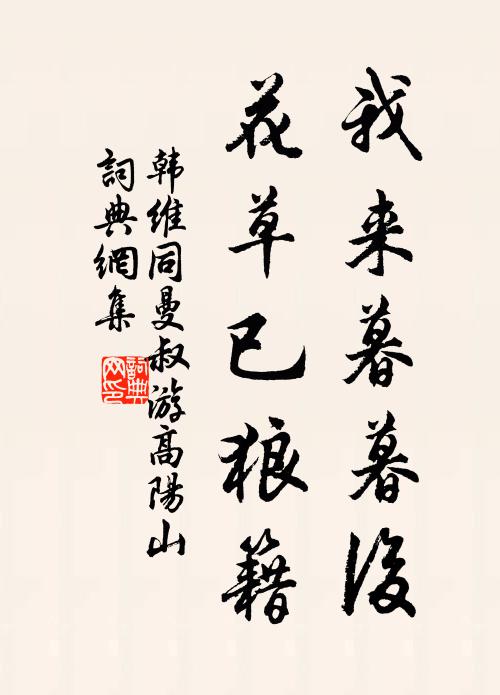 我来暮暮後
花草已狼籍
韩维同曼叔游高陽山
詞典網集
詞典
网印